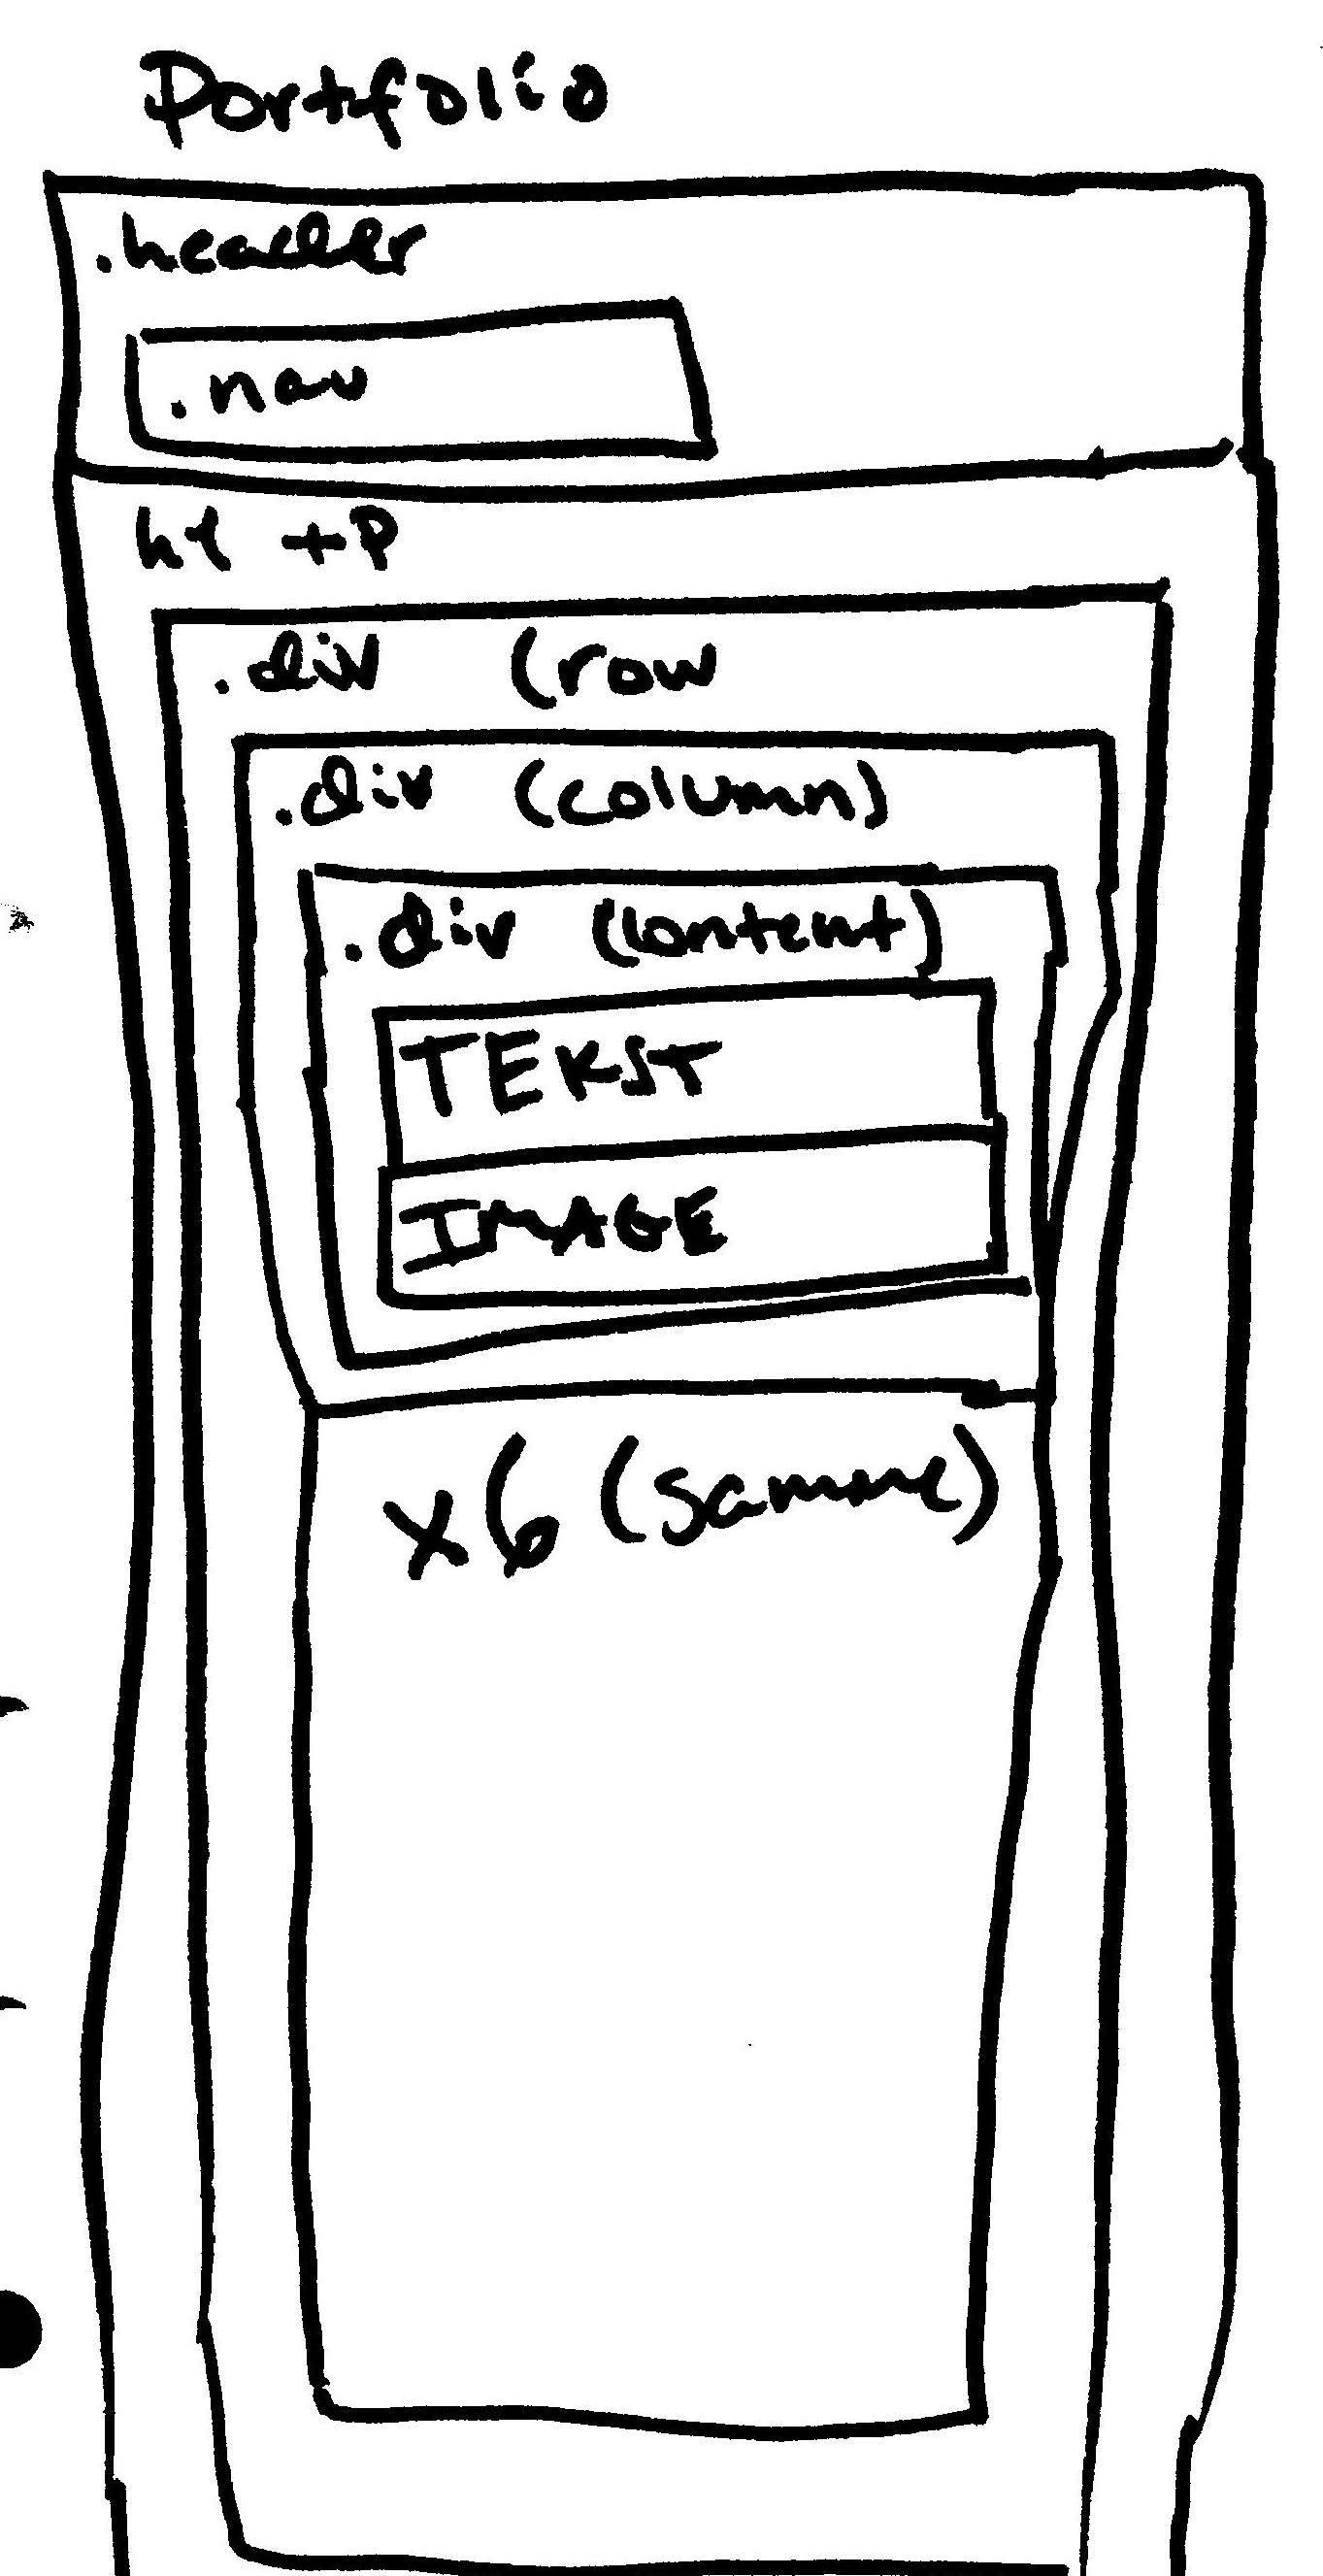 Portfolio
.header
.nav
h1 + P
.div (row
.div (column)
.div (content)
TEKST
IMAGE
x6 (samme)